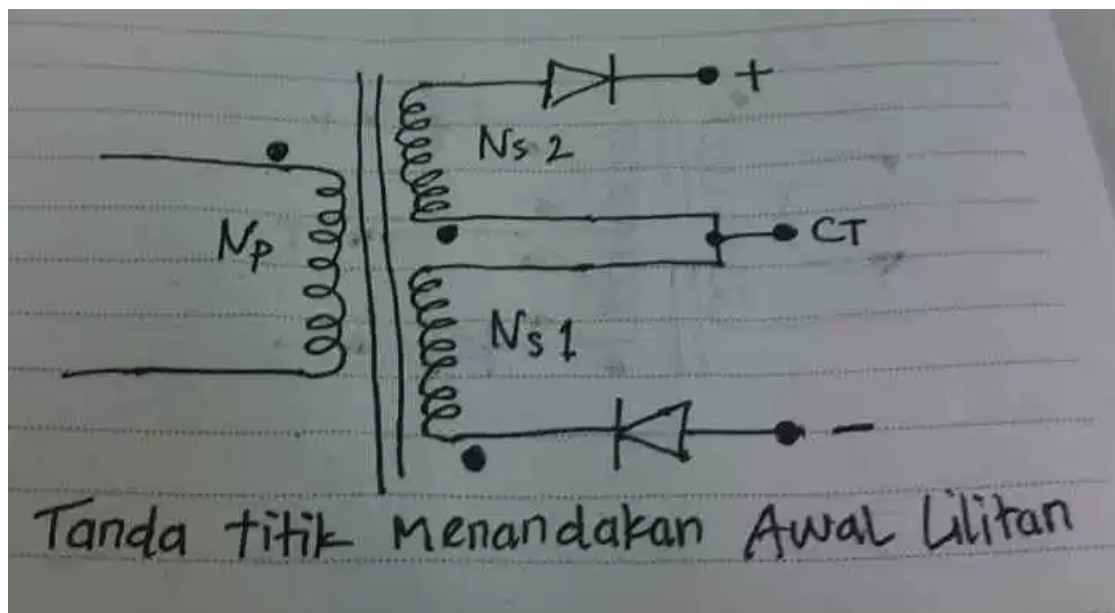 +
Ns2
Np
CT
Ns1
-
Tanda titik Menandakan Awal Lilitan